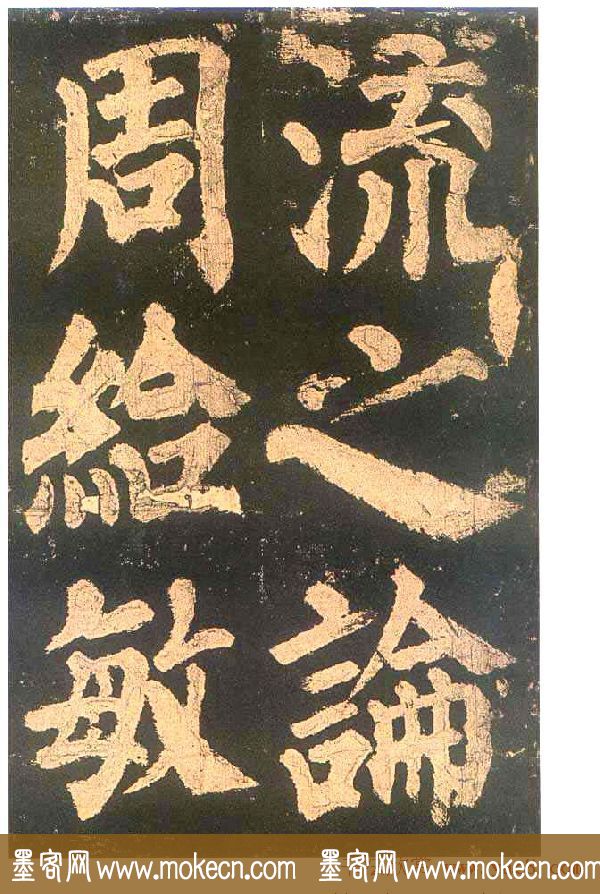 流之論
周給敏
墨客网 www.mokecn.com 墨客网 www.mokecn.com